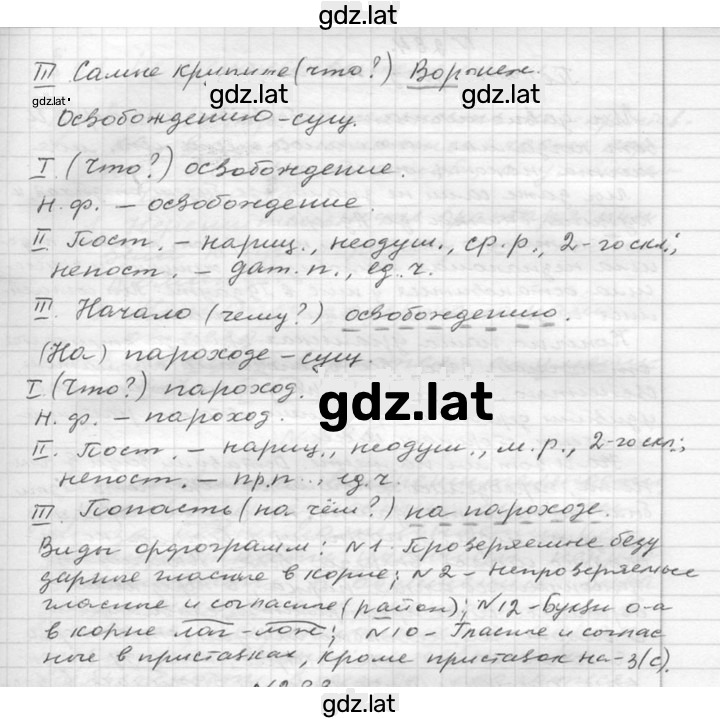 gdz.lat
III. Самне крипите (что?) Воронеж.
gdz.lat
gdz.lat
Освобождению - сущ.
I. (Что?) освобождение.
н. ф. – освобождение.
II. Пост. – нариц., неодуш., ср. р., 2-го скл.;
непост. – дат. п., ед. ч.
III. Начало (чему?) освобождению.
(На) пароходе - сущ.
I. (Что?) пароход.
н. ф. – пароход.
gdz.lat
II. Пост. – нариц., неодуш., м. р., 2-го скл.;
непост. – пр. п., ед. ч.
III. Попасть (на чём?) на пароходе.
Виды орфограмм: №1. Проверяемые безу
дарные гласные в корне; №2 - Непроверяемые
гласные и согласные (район); №12 - Буквы о-а
в корне лаг - лож; №10 - Гласные и соглас
ные в приставках, кроме приставок на -з(с).
gdz.lat